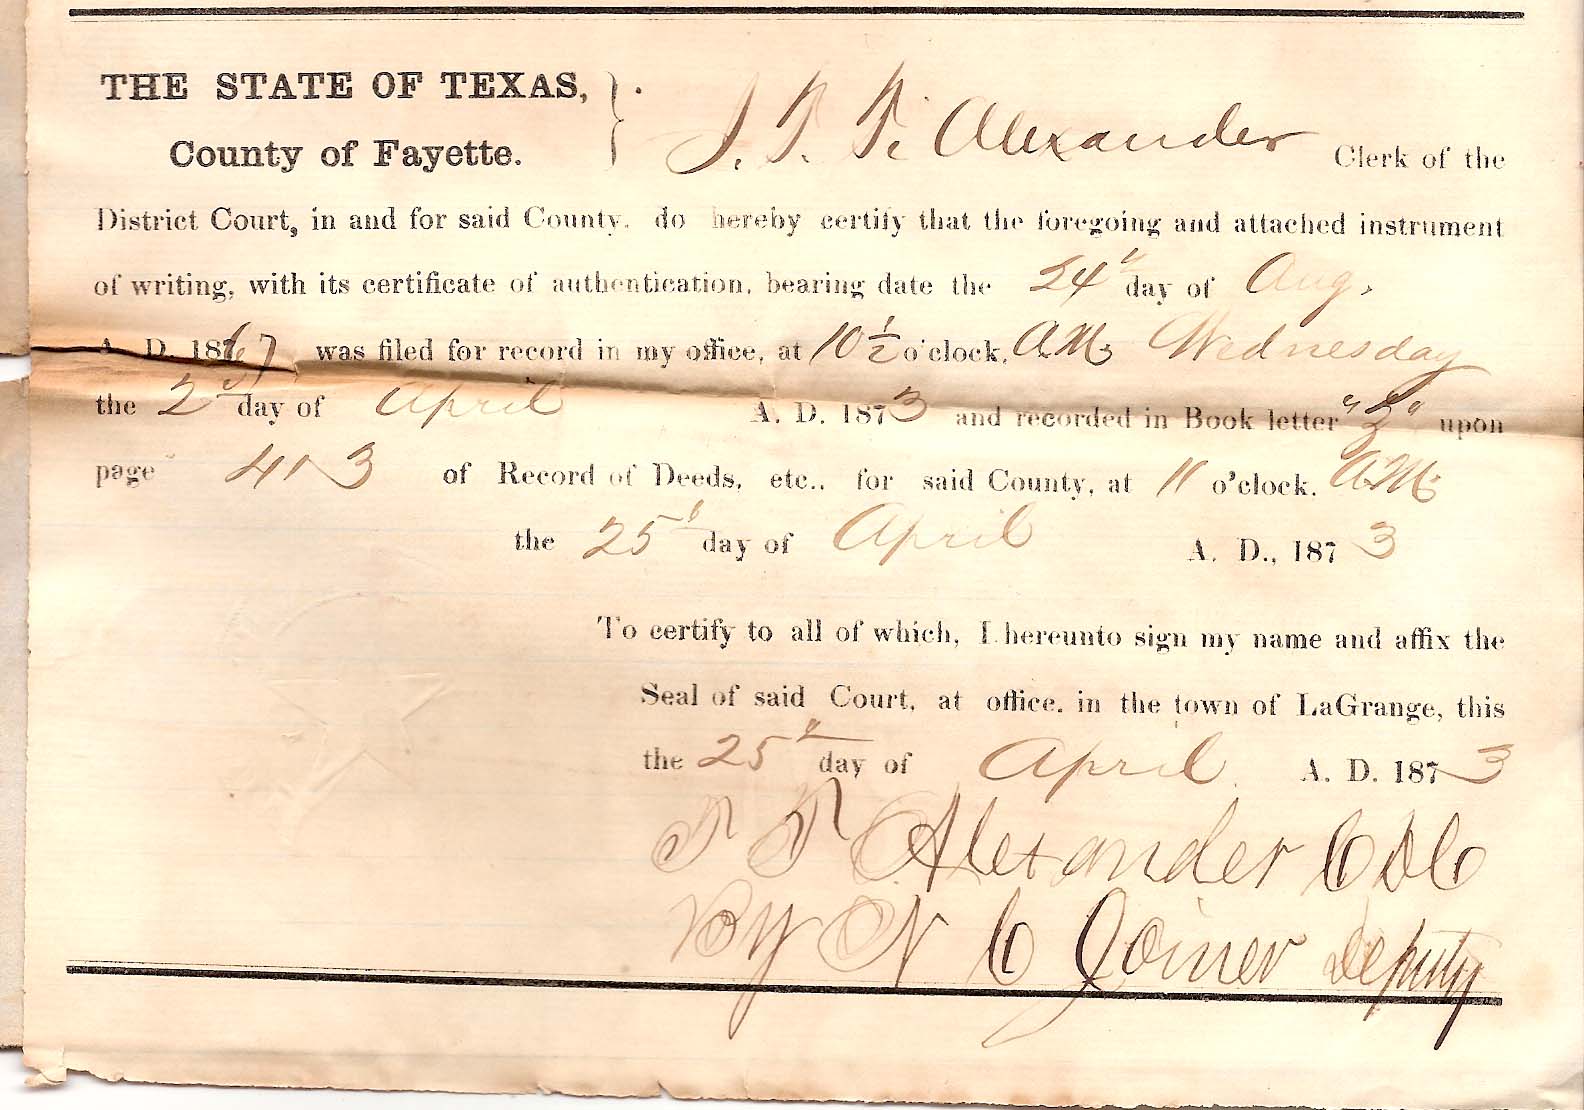 THE STATE OF TEXAS,
County of Fayette.
I, T. T. Alexander Clerk of the
District Court, in and for said County, do hereby certify that the foregoing and attached instrument
of writing, with its certificate of authentication, bearing date the 24" day of Aug.
A. D. 1867 was filed for record in my office, at 10 1/2 o'clock, A.M. Wednesday
the 2d day of April A. D. 1873 and recorded in Book letter "Z" upon
page 413 of Record of Deeds, etc., for said County, at 11 o'clock, A.M.
the 25 day of April A. D., 1873
To certify to all of which, I hereunto sign my name and affix the
Seal of said Court, at office, in the town of LaGrange, this
the 25 day of April A. D. 1873
T T Alexander C D C
By N C Joiner Deputy